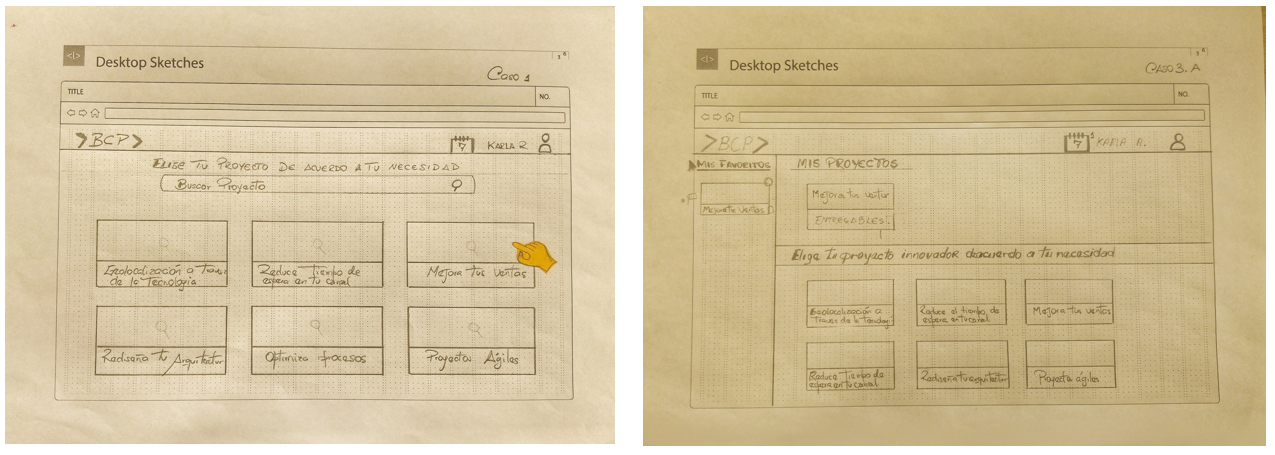 Desktop Sketches
Caso 1
TITLE
NO.
>BCP>
7
KARLA R
ELIGE TU PROYECTO DE ACUERDO A TU NECESIDAD
Buscar Proyecto
Geolocalización a Traves
de la Tecnología
Reduce Tiempo de
espera en tu canal
Mejora tus ventas
Rediseña tu Arquitectur
Optimiza procesos
Proyectos Ágiles
Desktop Sketches
CASO 3. A
TITLE
NO.
>BCP>
7
1
KARLA R.
MIS FAVORITOS
MIS PROYECTOS
Mejora tus ventas
Mejora tus ventas
ENTREGABLES:
1
Elige tu proyecto innovador deacuerdo a tu necesidad
Geolocalización a
Traves de la Tecnologí
Reduce el tiempo de
espera en tu canal
Mejora tus ventas
Reduce Tiempo de
espera en tu canal
Rediseña tu arquitectur
Proyecto ágiles